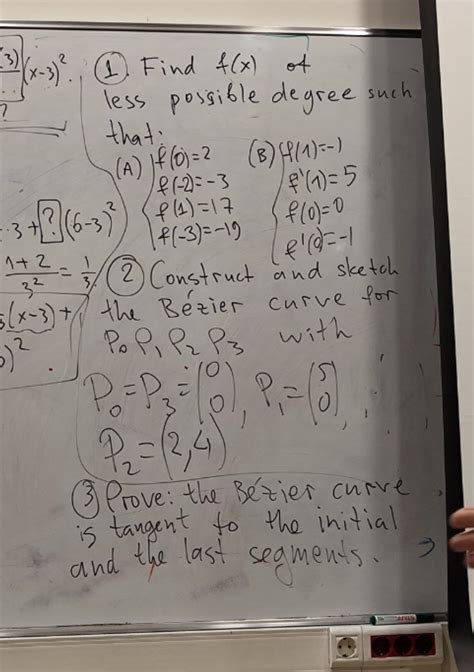 3)
(x-3)²
?
·3 + ? (6-3)²
1+2
3²
= 1
3
(x-3) +
)²
① Find f(x) of
less possible degree such
that:
(A) f(0)=2
f(-2)=-3
f(1)=17
f(-3)=-19
(B) f(1)=-1
f'(1)=5
f(0)=0
f'(0)=-1
② Construct and sketch
the Bézier curve for
P₀ P₁ P₂ P₃ with
P₀=P₃=(0 0), P₁=(5 0),
P₂=(2,4)
③ Prove: the Bézier curve
is tangent to the initial
and the last segments.